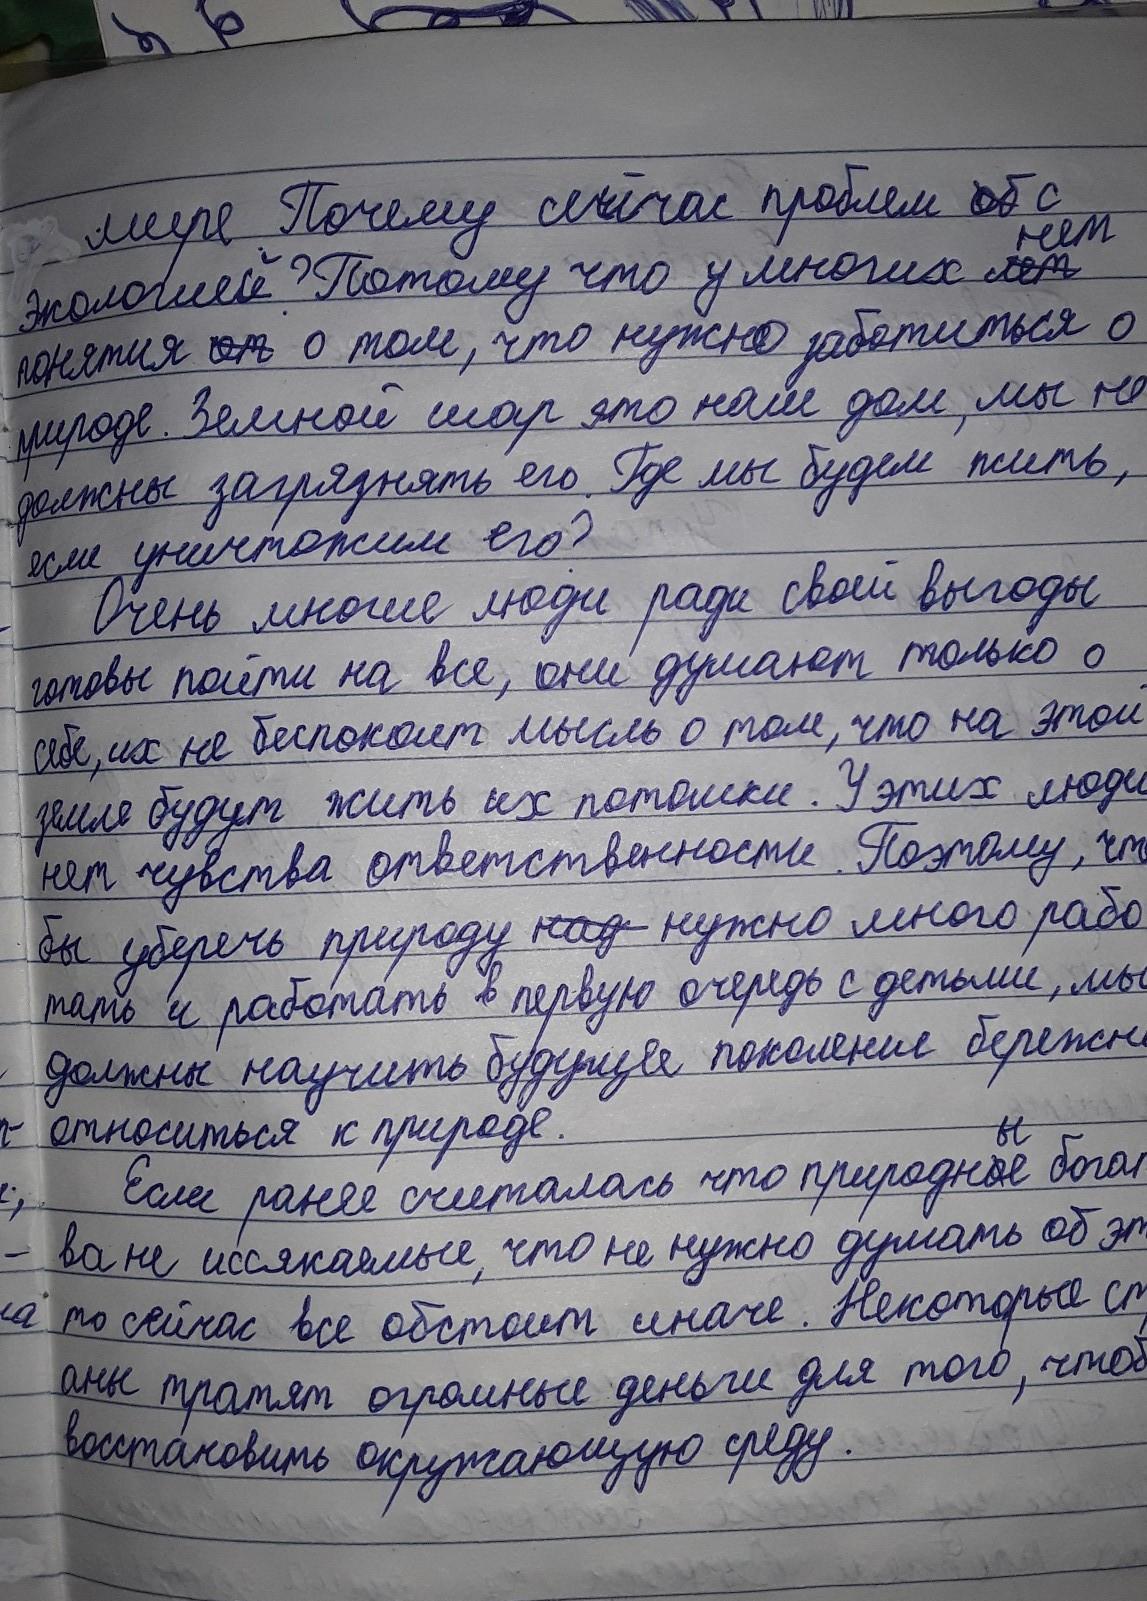 мире Почему сейчас проблем об с
экологией? Потому что у многих нет
понятия от о том, что нужно заботиться о
природе. Земной шар это наш дом, мы не
должны загрязнять его. Где мы будем жить,
если уничтожим его?
Очень многие люди ради своей выгоды
готовы пойти на все, они думают только о
себе, их не беспокоит мысль о том, что на этой
земле будут жить их потомки. У этих люди
нет чувства ответственности. Поэтому, что
бы уберечь природу над нужно много рабо
тать и работать в первую очередь с детьми, мы
должны научить будущее поколение бережно
относиться к природе.
Если ранее считалась что природные богат
ва не иссякаемые, что не нужно думать об эт
то сейчас все обстоит иначе. Некоторые ст
аны тратят огромные деньги для того, чтоб
восстановить окружающую среду.